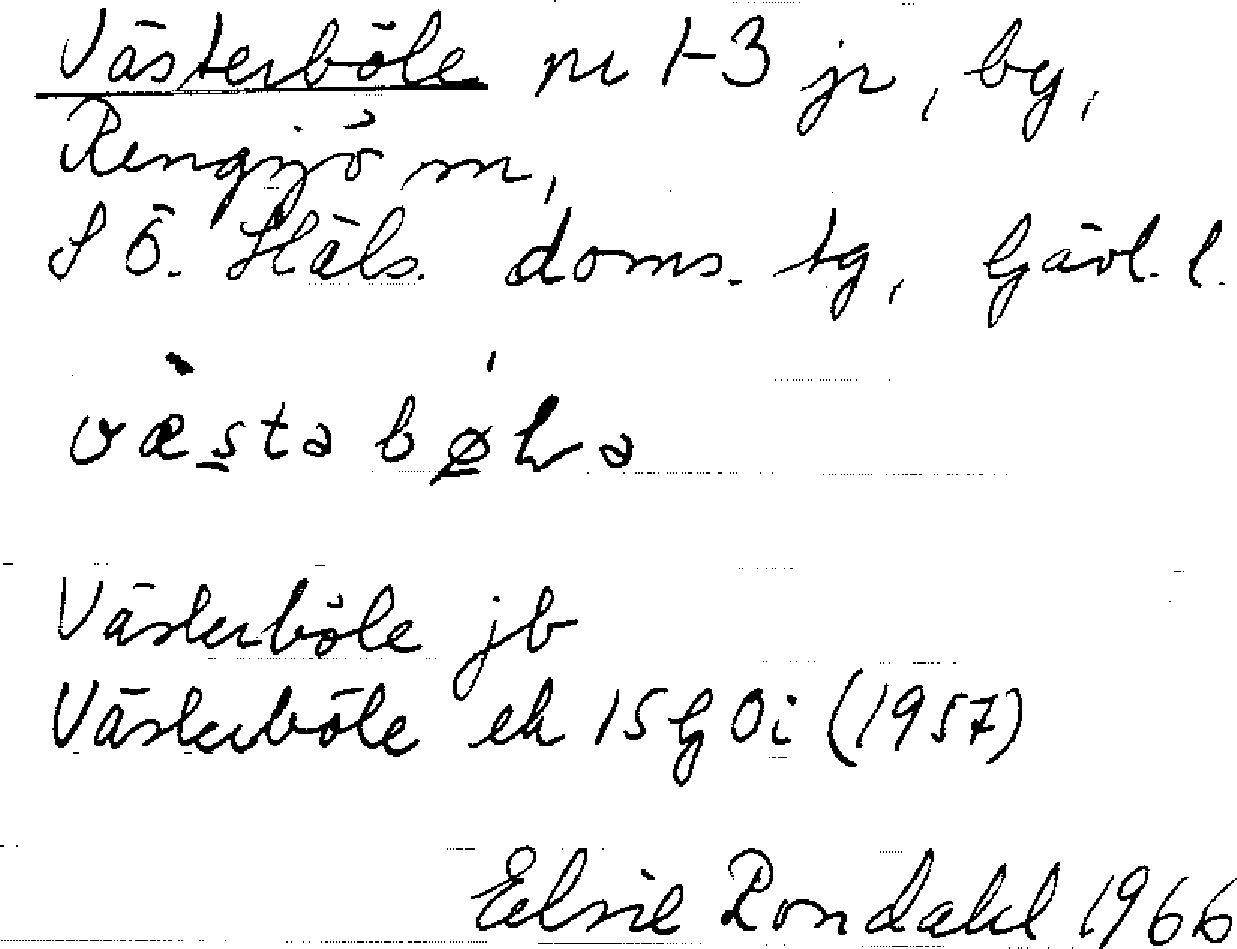 Västerböle nr 1-3 jr, by,
Rengsjö sn,
S Ö. Häls. doms. tg, Gävl. l.
västa bøla
Västerböle jb
Västerböle ek 15G 0i (1957)
Elsie Rondahl 1966